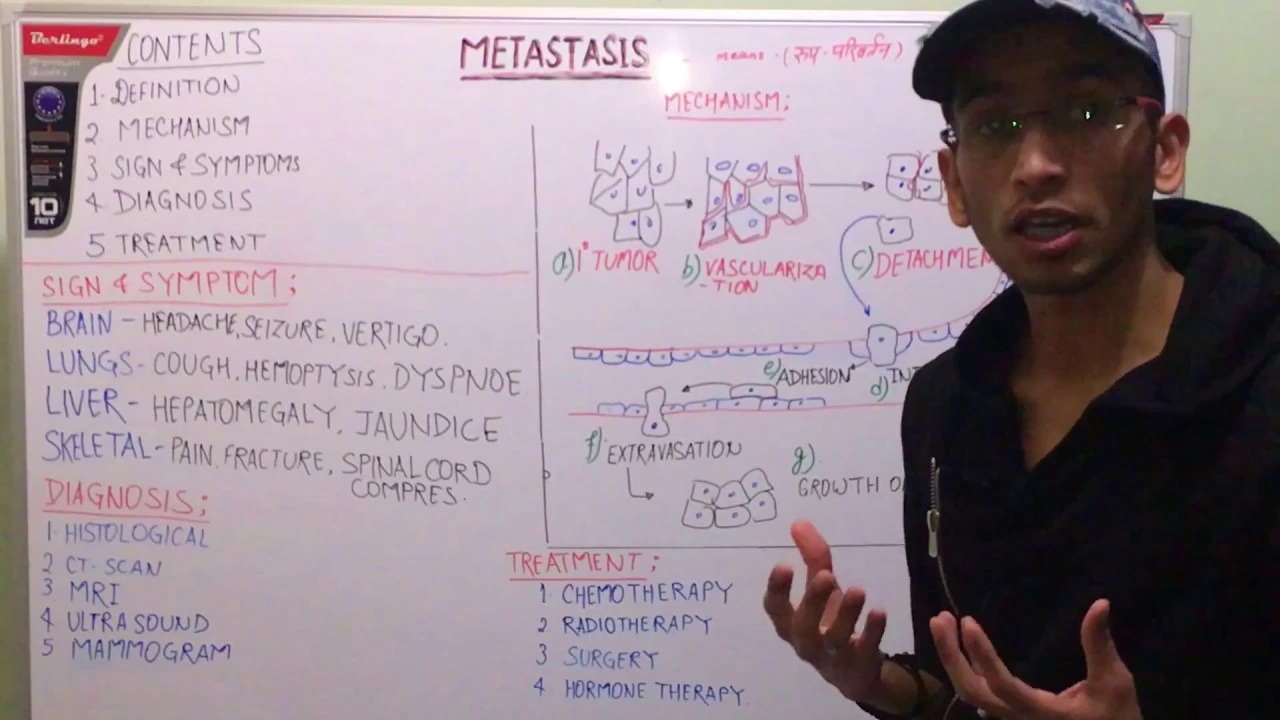 Berlingo
CONTENTS
1. DEFINITION
2 MECHANISM
3 SIGN & SYMPTOMS
4 DIAGNOSIS
5 TREATMENT
10
SIGN & SYMPTOM;
BRAIN - HEADACHE, SEIZURE, VERTIGO.
LUNGS - COUGH, HEMOPTYSIS. DYSPNOE
LIVER - HEPATOMEGALY, JAUNDICE
SKELETAL - PAIN. FRACTURE, SPINAL CORD
COMPRES.
DIAGNOSIS;
1. HISTOLOGICAL
2 CT. SCAN
3 MRI
4 ULTRA SOUND
5 MAMMOGRAM
METASTASIS - means. (रूप-परिवर्तन)
MECHANISM;
a) 1° TUMOR
b) VASCULARIZA
-TION
c) DETACHMEN
e) ADHESION
d) INT
f) EXTRAVASATION
g).
GROWTH O
TREATMENT;
1 CHEMOTHERAPY
2 RADIOTHERAPY
3 SURGERY
4 HORMONE THERAPY